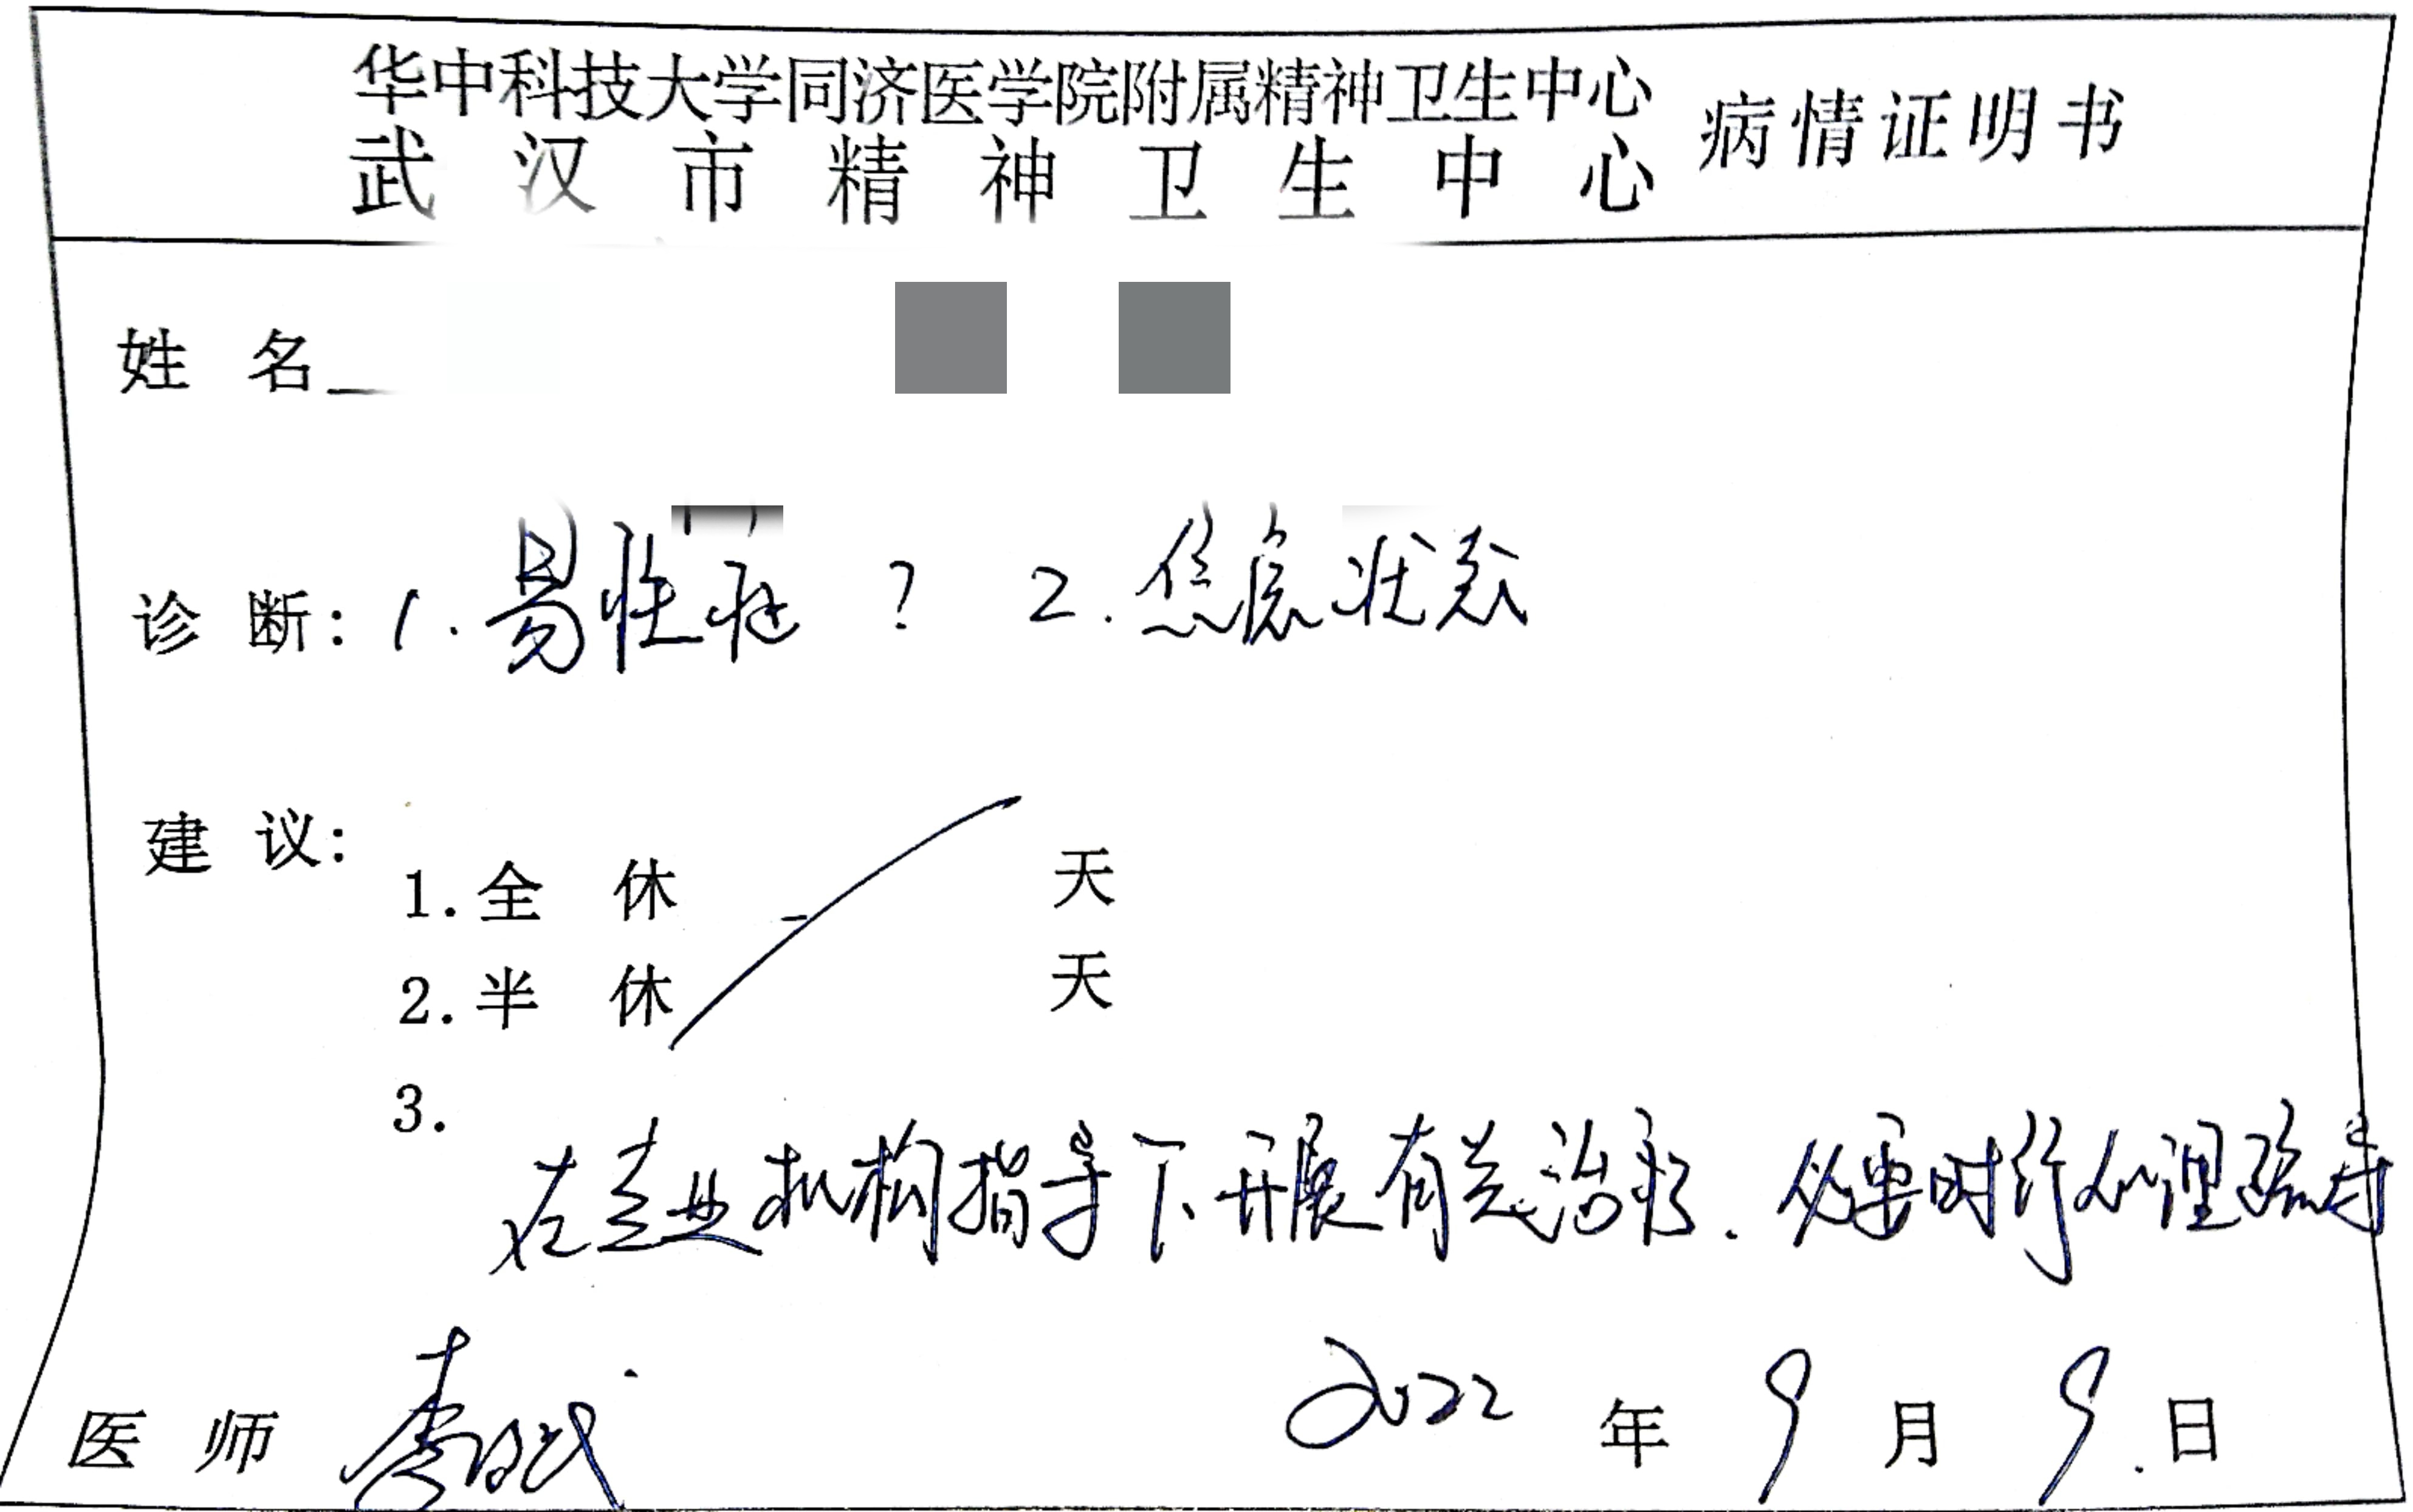 华中科技大学同济医学院附属精神卫生中心
武汉市精神卫生中心 病情证明书
姓 名
诊 断: 1. 易性症 ? 2. 焦虑状态
建 议:
1. 全 休 天
2. 半 休 天
3.
在专业机构指导下开展有关治疗. 必要时行心理疏导
医 师 2022 年 9 月 9 日